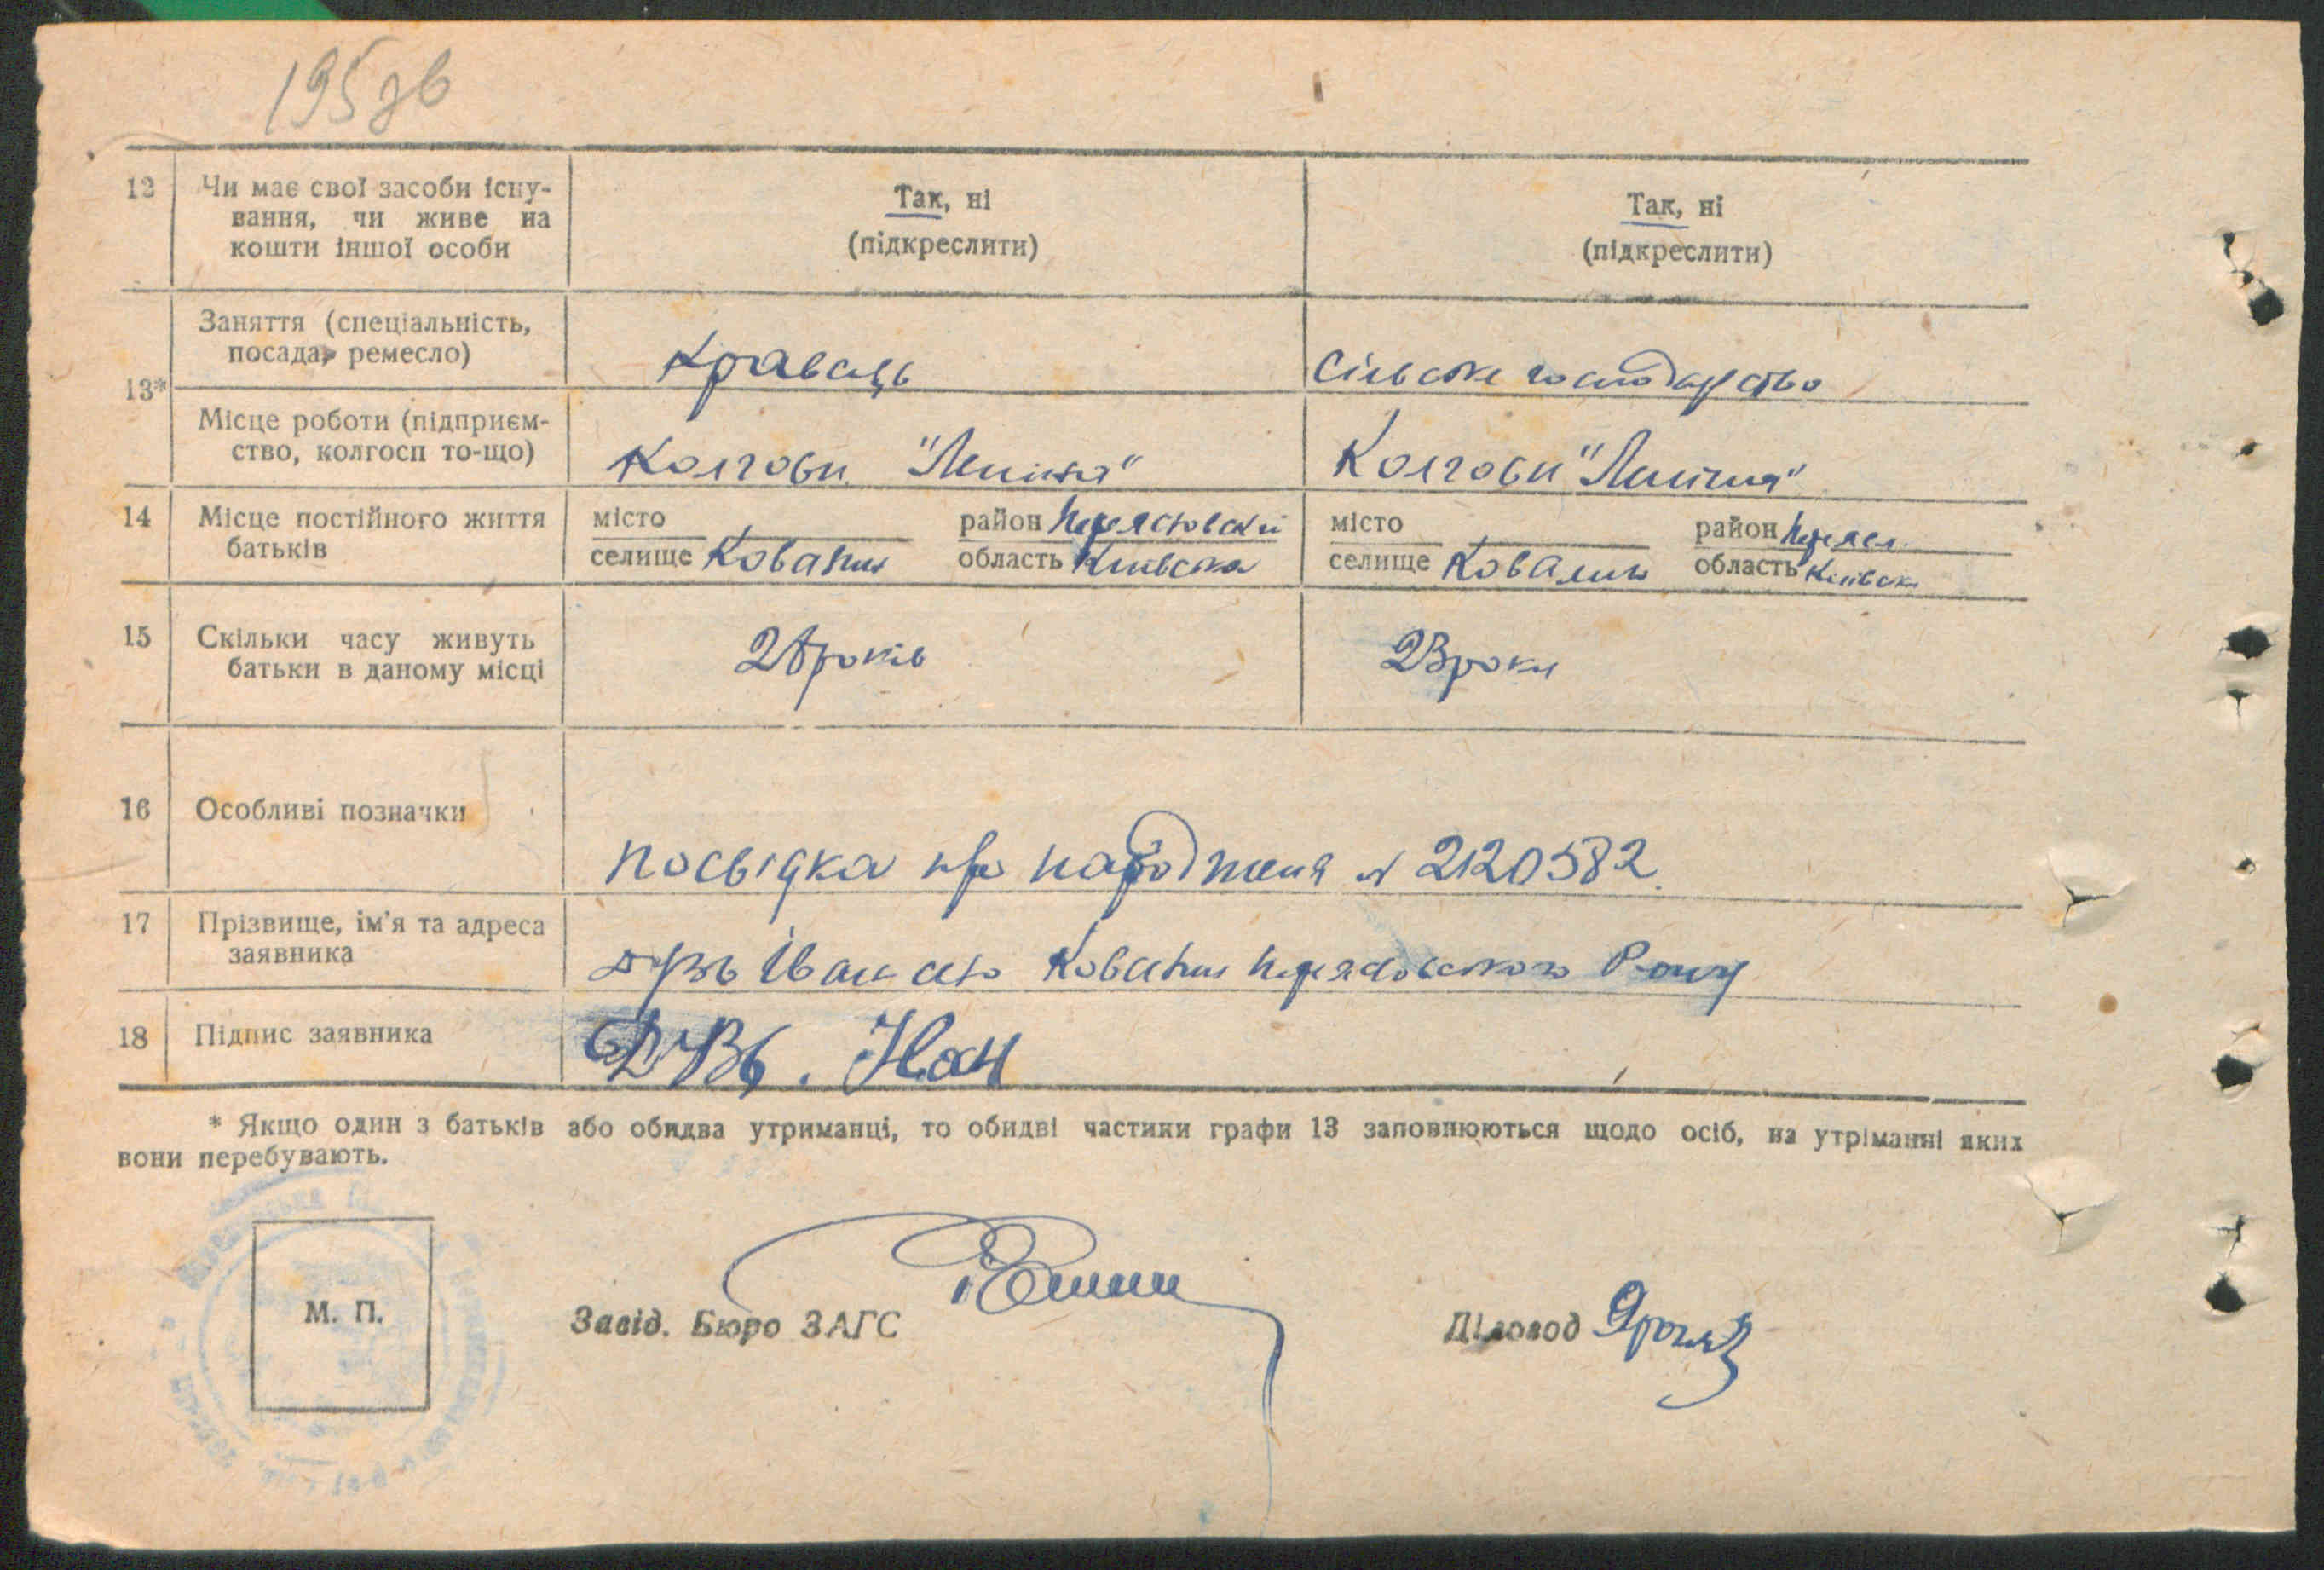 195 зв
12 Чи має свої засоби існу-
вання, чи живе на
кошти іншої особи
Так, ні
(підкреслити)
Так, ні
(підкреслити)
13*
Заняття (спеціальність,
посада, ремесло)
Кравець
Сільське господарство
Місце роботи (підприєм-
ство, колгосп то-що)
Колгосп "Леніна"
Колгосп "Леніна"
14 Місце постійного життя
батьків
місто район
селище Ковалин область Київська
місто район Переясл.
селище Ковалин область Київськ
15 Скільки часу живуть
батьки в даному місці
років
23 роки
16 Особливі позначки
Посвідка про народження № 2120582.
17 Прізвище, ім'я та адреса
заявника
Іван село Ковалин
18 Підпис заявника
* Якщо один з батьків або обидва утриманці, то обидві частини графи 13 заповнюються щодо осіб, на утріманні яких
вони перебувають.
М. П.
Завід. Бюро ЗАГС
Діловод